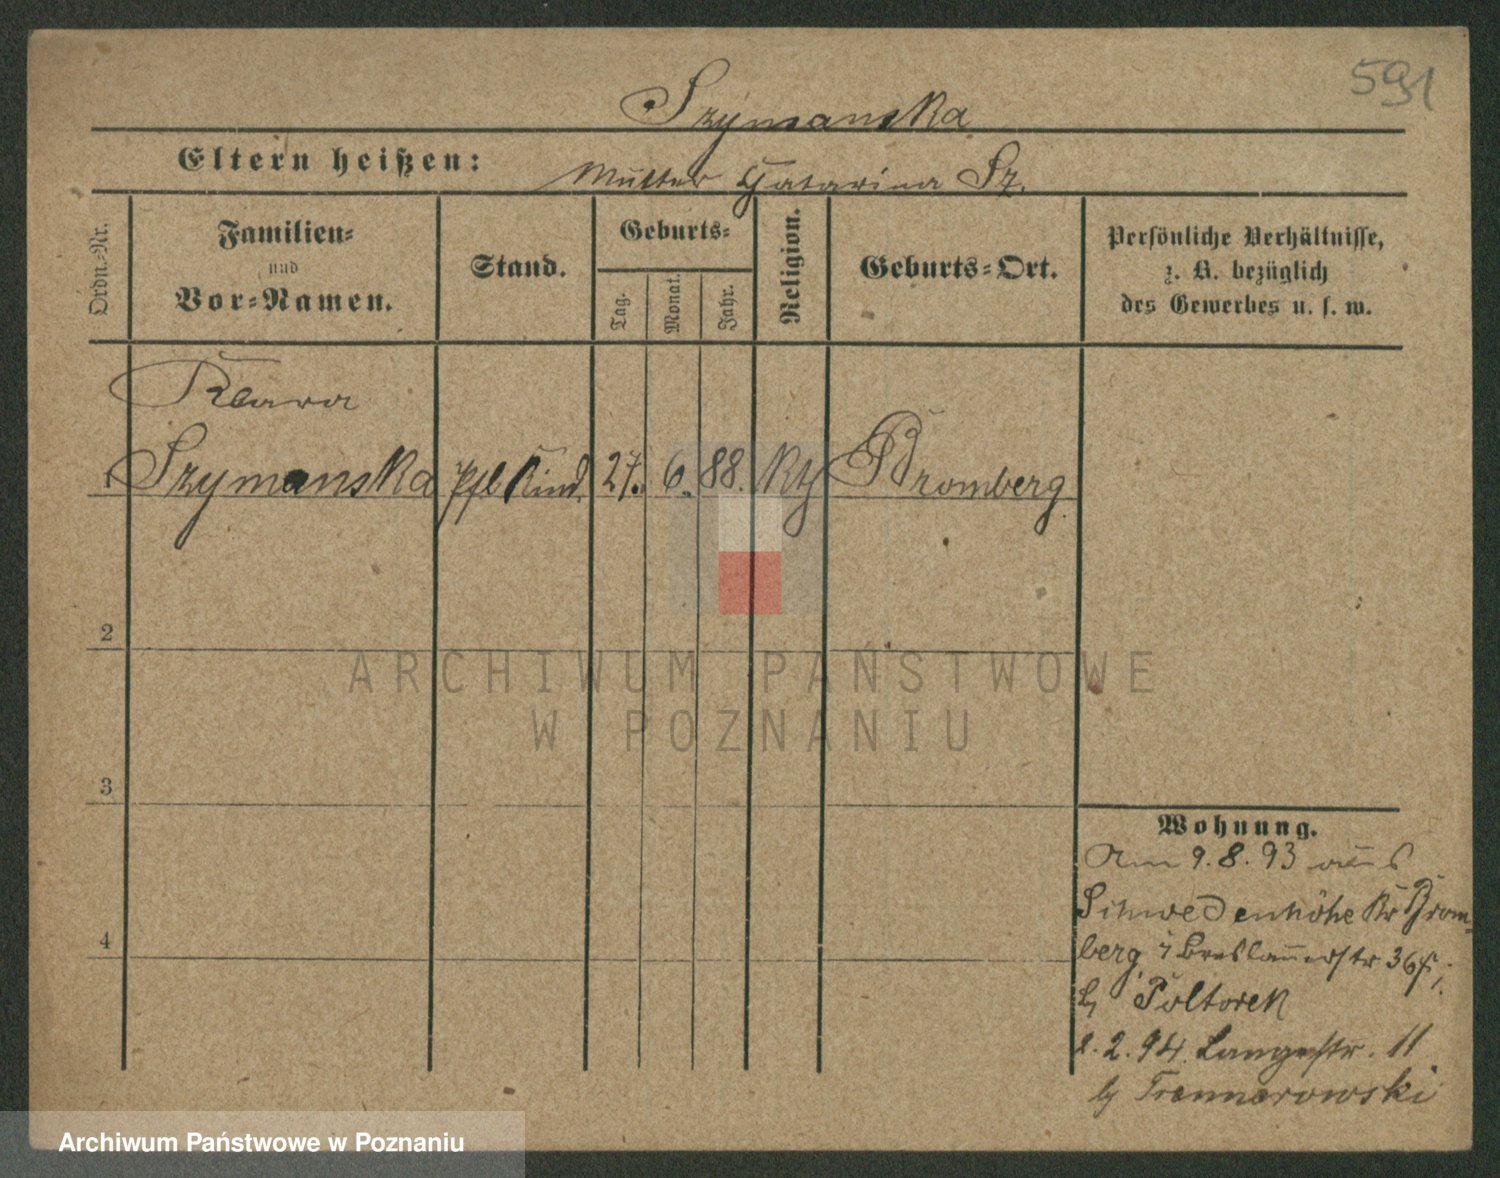 591
Szymanska
Eltern heißen: Mutter Catarina Sz.
Ordn.-Nr.
Familien-
und
Vor-Namen.
Stand.
Geburts-
Tag.
Monat.
Jahr.
Religion.
Geburts-Ort.
Persönliche Verhältnisse,
z. B. bezüglich
des Gewerbes u. s. w.
Klara
1 Szymanska Pfl Kind. 27. 6. 88. Kth Bromberg
2
3
4
ARCHIWUM PAŃSTWOWE
W POZNANIU
Wohnung.
Am 9.8.93 aus
Schwedenhöhe Kr Brom-
berg, Breslauerstr 36
b Poltorek
2.2.94. Langestr. 11
b
Archiwum Państwowe w Poznaniu